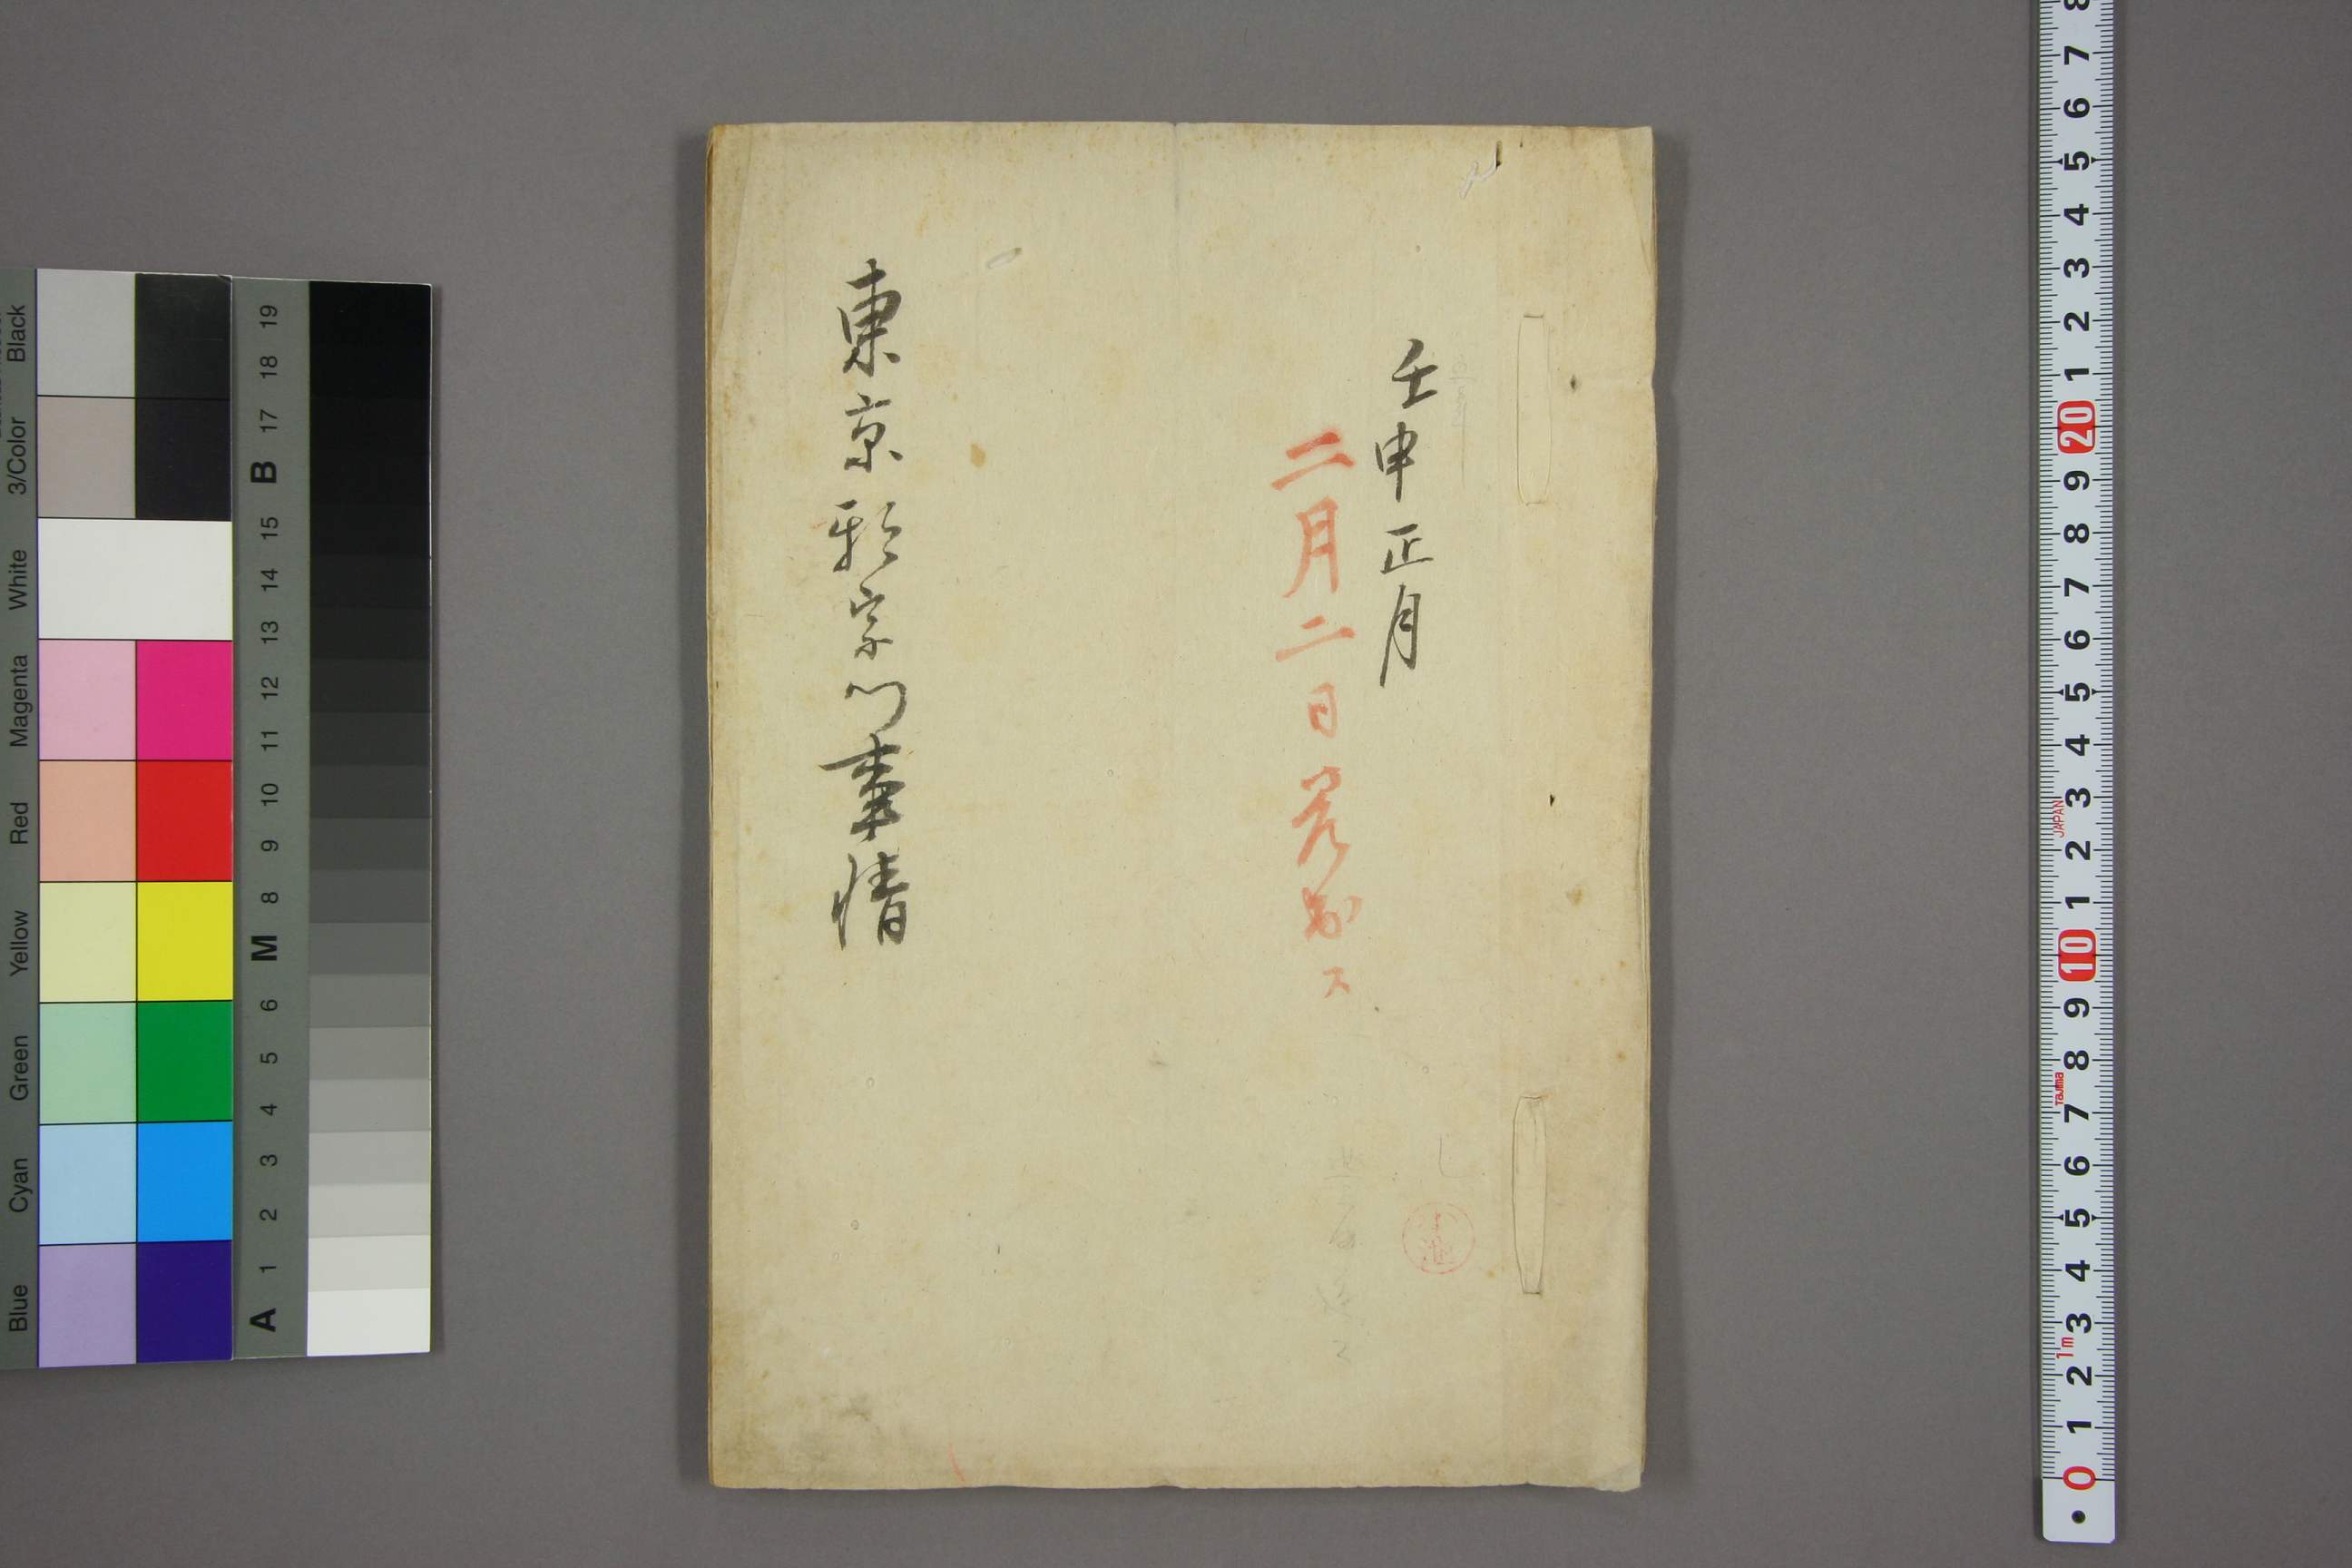 壬申正月
二月二日
東京新宗門事情
Black
3/Color
White
Magenta
Red
Yellow
Green
Cyan
Blue
19
18
17
B
15
14
13
12
11
10
9
8
M
6
5
4
3
2
1
A
8
7
6
5
4
3
2
1
20
9
8
7
6
5
4
3
JAPAN
2
1
10
9
8
Tajima
7
6
5
4
3
1m
2
1
0